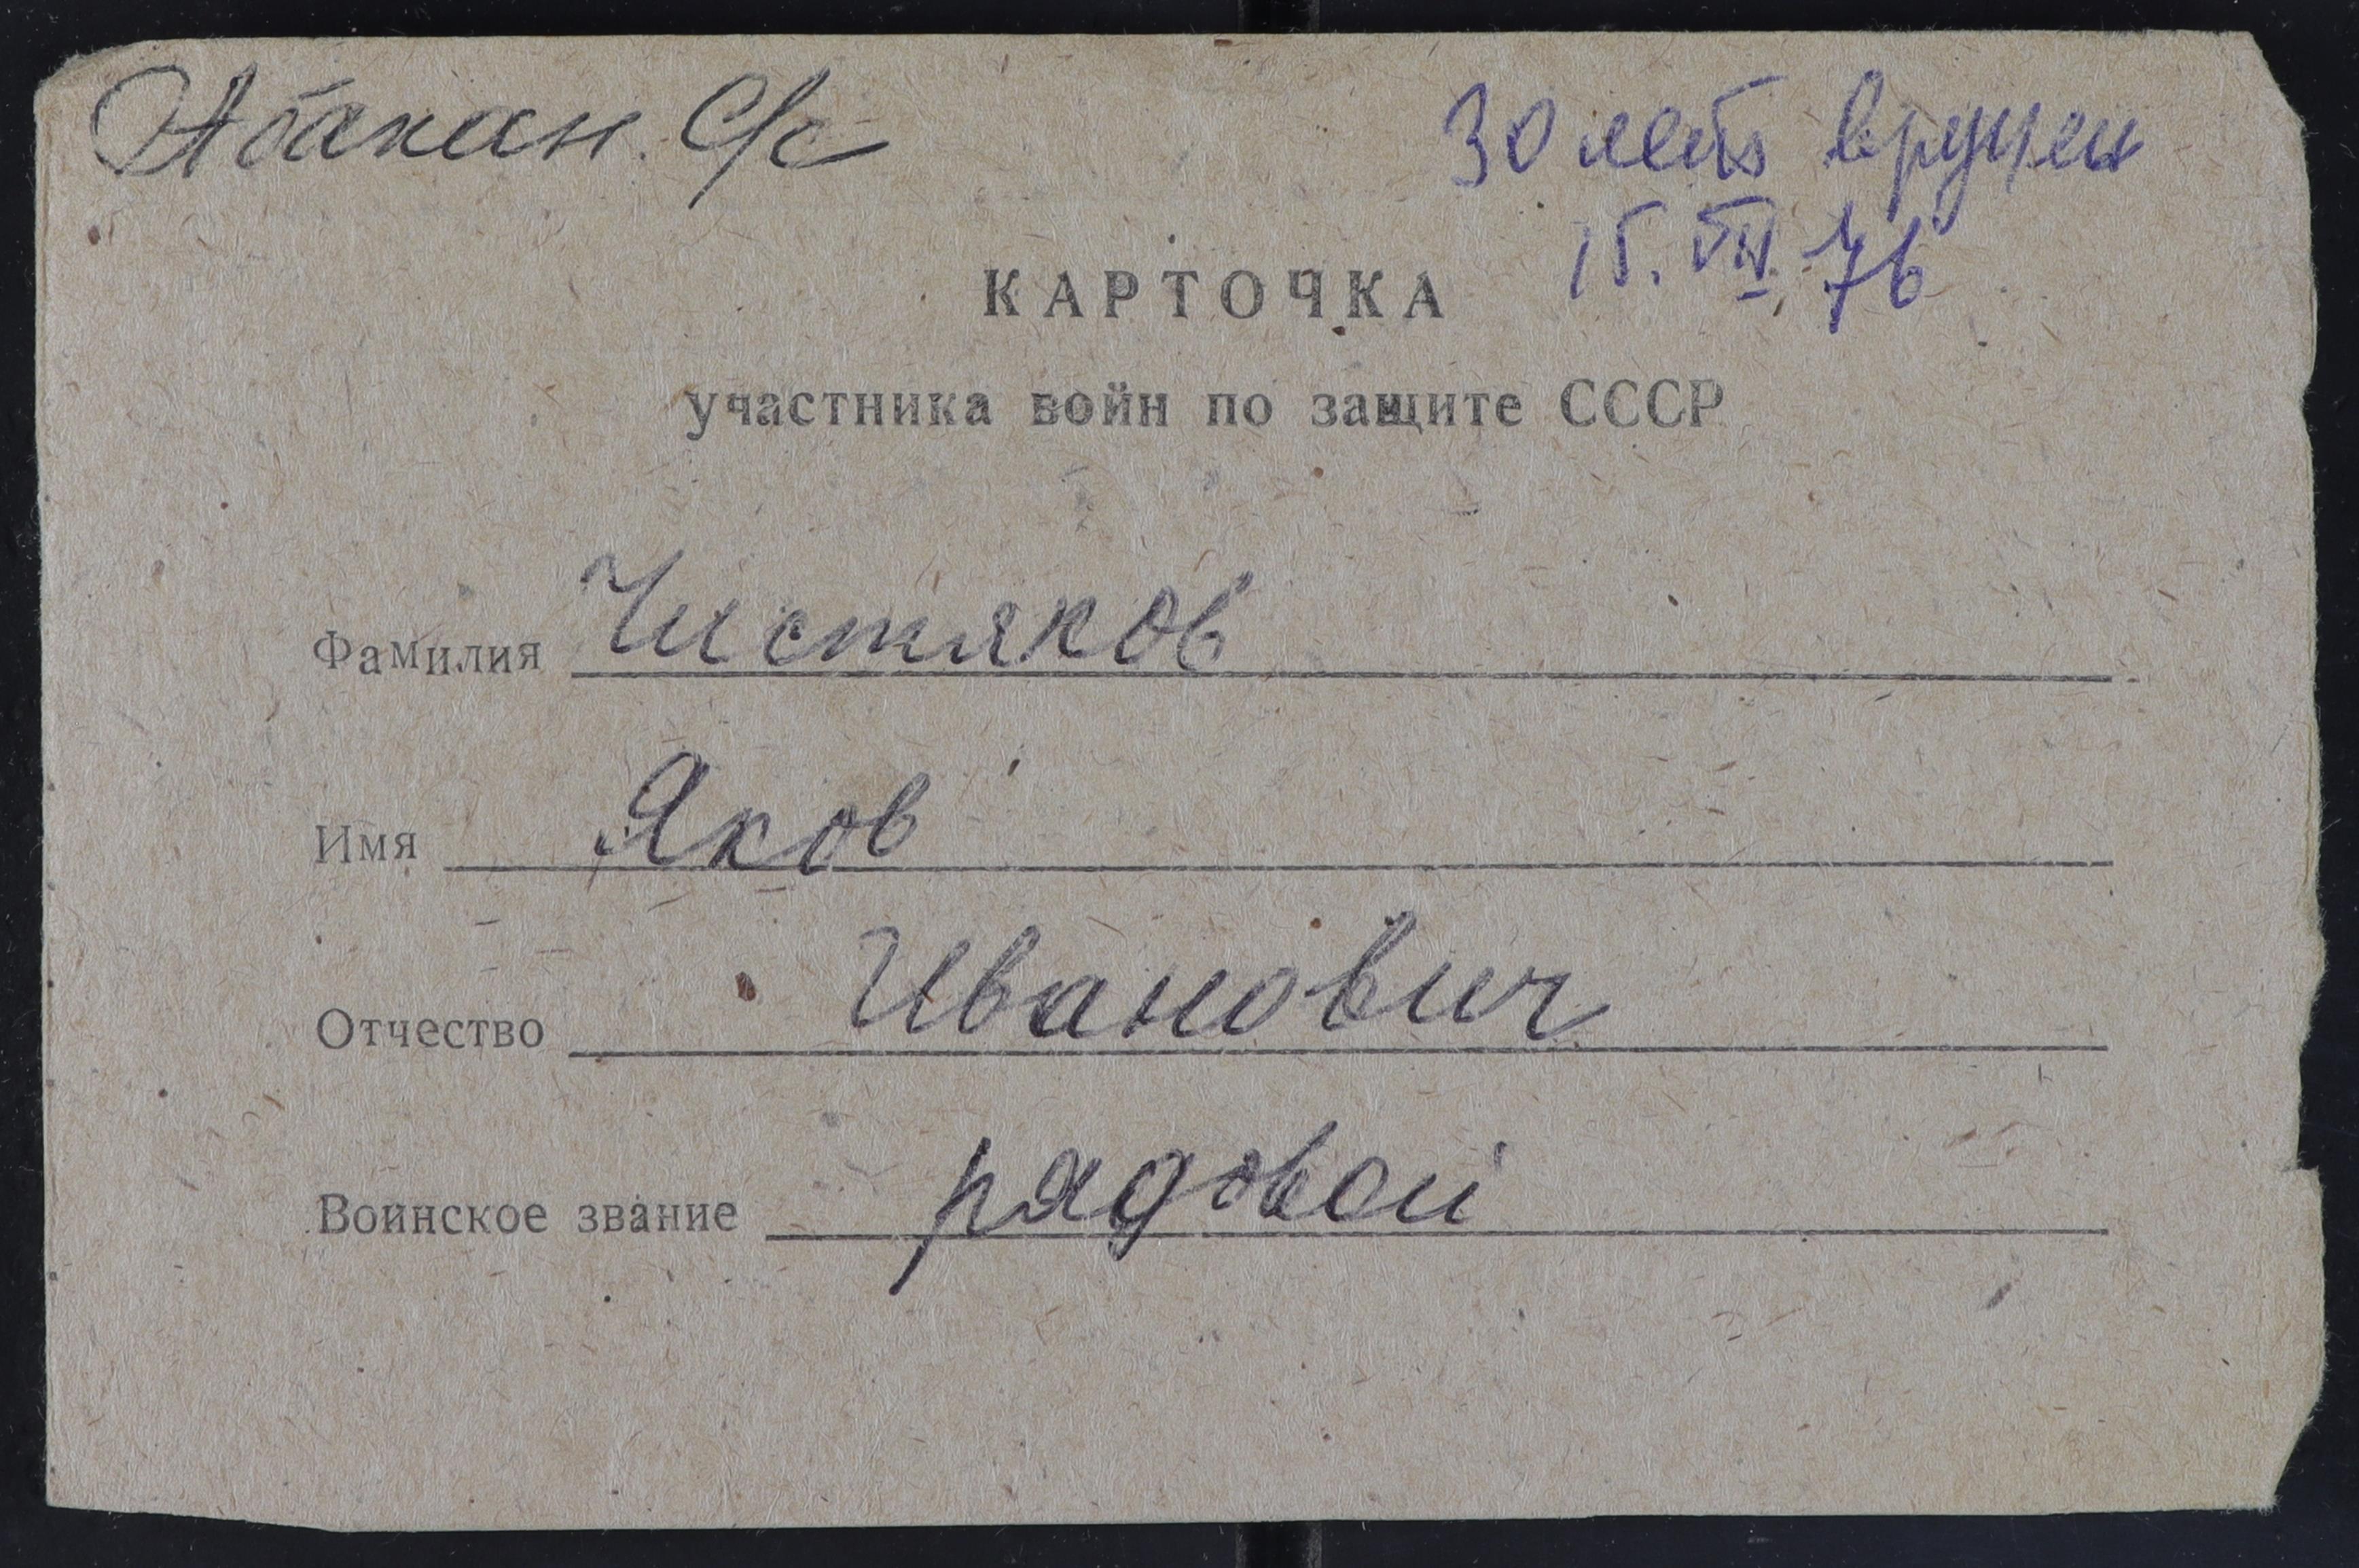 Абакан. С/с
30 лет вручен
15. VII. 76
КАРТОЧКА
участника войн по защите СССР
Фамилия Чистяков
Имя Яков
Отчество Иванович
Воинское звание рядовой